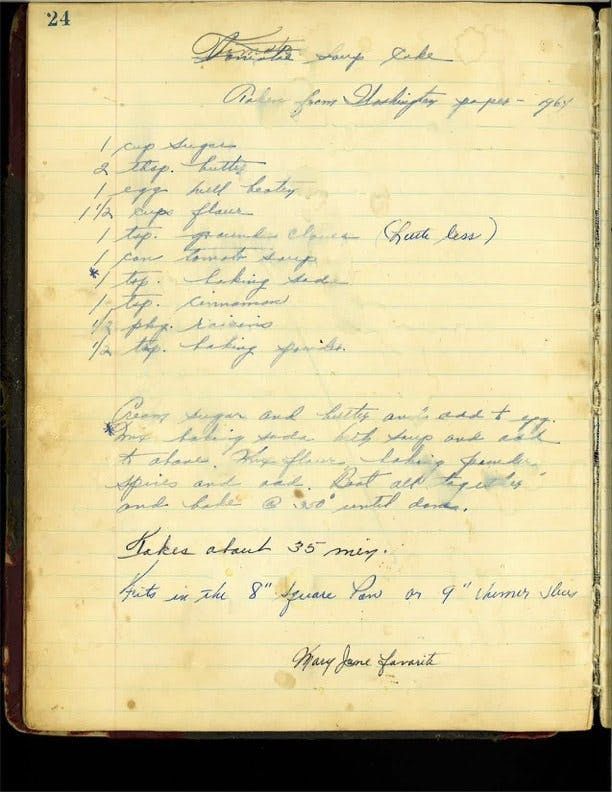 24
Tomato Soup Cake
Taken from Washington paper - 1964
1 cup sugar
2 tbsp. butter
1 egg well beaten
1 1/2 cups flour
1 tsp. ground cloves (Little less)
1 can tomato soup
* 1 tsp. baking soda
1 tsp. cinnamon
1/2 pkg. raisins
1/2 tsp. baking powder.
Cream sugar and butter and add to egg.
* Mix baking soda with soup and add
to above. Mix flour, baking powder,
spices and add. Beat all together
and bake @ 350° until done.
Takes about 35 min.
Fits in the 8" Square Pan or 9"
Mary Jane favorite